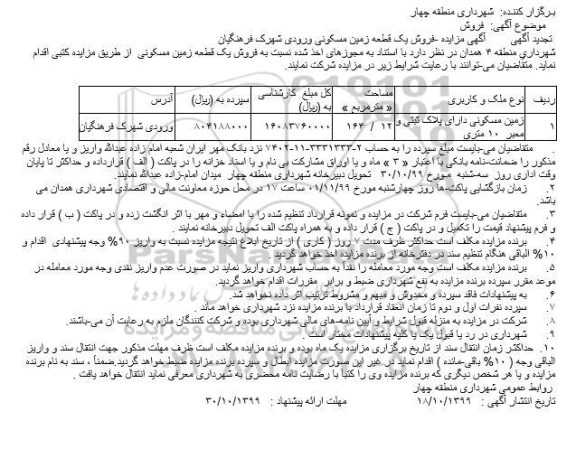 برگزار کننده: شهرداری منطقه چهار
موضوع آگهی: فروش
تجدید آگهی آگهی مزایده -فروش یک قطعه زمین مسکونی ورودی شهرک فرهنگیان
شهرداری منطقه ۴ همدان در نظر دارد با استناد به مجوزهای اخذ شده نسبت به فروش یک قطعه زمین مسکونی از طریق مزایده کتبی اقدام
نماید. متقاضیان می‌توانند با رعایت شرایط زیر در مزایده شرکت نمایند.
ردیف نوع ملک و کاربری مساحت « مترمربع » کل مبلغ کارشناسی به (ریال) سپرده به (ریال) آدرس
۱ زمین مسکونی دارای پلاک ثبتی و معبر ۱۰ متری ۱۶۴ / ۱۲ ۱۶۰۸۳۷۶۰۰۰۰ ۸۰۴۱۸۸۰۰۰ ورودی شهرک فرهنگیان
۱. متقاضیان می‌بایست مبلغ سپرده را به حساب ۲-۳۳۳۱۳۳۳-۱۱-۷۴۰۲ نزد بانک مهر ایران شعبه امام زاده عبدالله واریز و یا معادل رقم
مذکور را ضمانت‌نامه بانکی با اعتبار « ۳ » ماه و یا اوراق مشارکت بی نام و یا اسناد خزانه را در پاکت ( الف ) قرارداده و حداکثر تا پایان
وقت اداری روز سه‌شنبه مورخ ۳۰/۱۰/۹۹ تحویل دبیرخانه شهرداری منطقه چهار میدان امام‌زاده عبدالله نمایند.
۲. زمان بازگشایی پاکت‌ها روز چهارشنبه مورخ ۰۱/۱۱/۹۹ ساعت ۱۷ در محل حوزه معاونت مالی و اقتصادی شهرداری همدان می
باشد.
۳. متقاضیان می‌بایست فرم شرکت در مزایده و نمونه قرارداد تنظیم شده را با امضاء و مهر با اثر انگشت زده و در پاکت ( ب ) قرار داده
و فرم پیشنهاد قیمت را تکمیل و در پاکت ( ج ) قرار داده و به همراه پاکت الف تحویل دبیرخانه نمایند .
۴. برنده مزایده مکلف است حداکثر ظرف مدت ۷ روز ( کاری ) از تاریخ ابلاغ نتیجه مزایده نسبت به واریز ۹۰% وجه پیشنهادی اقدام و
۱۰% الباقی هنگام تنظیم سند در دفترخانه از برنده مزایده اخذ خواهد گردید
۵. برنده مزایده مکلف است وجه مورد معامله را نقداً به حساب شهرداری واریز نماید در صورت عدم واریز نقدی وجه مورد معامله در
موعد مقرر سپرده برنده مزایده به نفع شهرداری ضبط و برابر مقررات اقدام خواهد گردید.
۶. به پیشنهادات فاقد سپرده و مخدوش و مبهم و مشروط ترتیب اثر داده نخواهد شد.
۷. سپرده نفرات اول و دوم تا زمان انعقاد قرارداد با برنده مزایده نزد شهرداری خواهد ماند .
۸. شرکت در مزایده به منزله قبول شرایط و آیین نامه‌های مالی شهرداری بوده و شرکت کنندگان ملزم به رعایت آن می‌باشند.
۹. شهرداری در رد یا قبول یک یا کلیه پیشنهادات مختار است .
۱۰. حداکثر زمان انتقال سند از تاریخ برگزاری مزایده یک ماه بوده و برنده مزایده مکلف است ظرف مهلت مذکور جهت انتقال سند و واریز
الباقی وجه ( ۱۰% باقی‌مانده ) اقدام نماید در غیر این صورت مزایده ابطال و سپرده برنده مزایده ضبط خواهد گردید.ضمناً ، سند به نام برنده
مزایده و یا هر شخص دیگری که برنده مزایده وی را کتبا با رضایت نامه محضری به شهرداری معرفی نماید انتقال خواهد یافت .
روابط عمومی شهرداری منطقه چهار
تاریخ انتشار آگهی : ۱۸/۱۰/۱۳۹۹ مهلت ارائه پیشنهاد : ۳۰/۱۰/۱۳۹۹